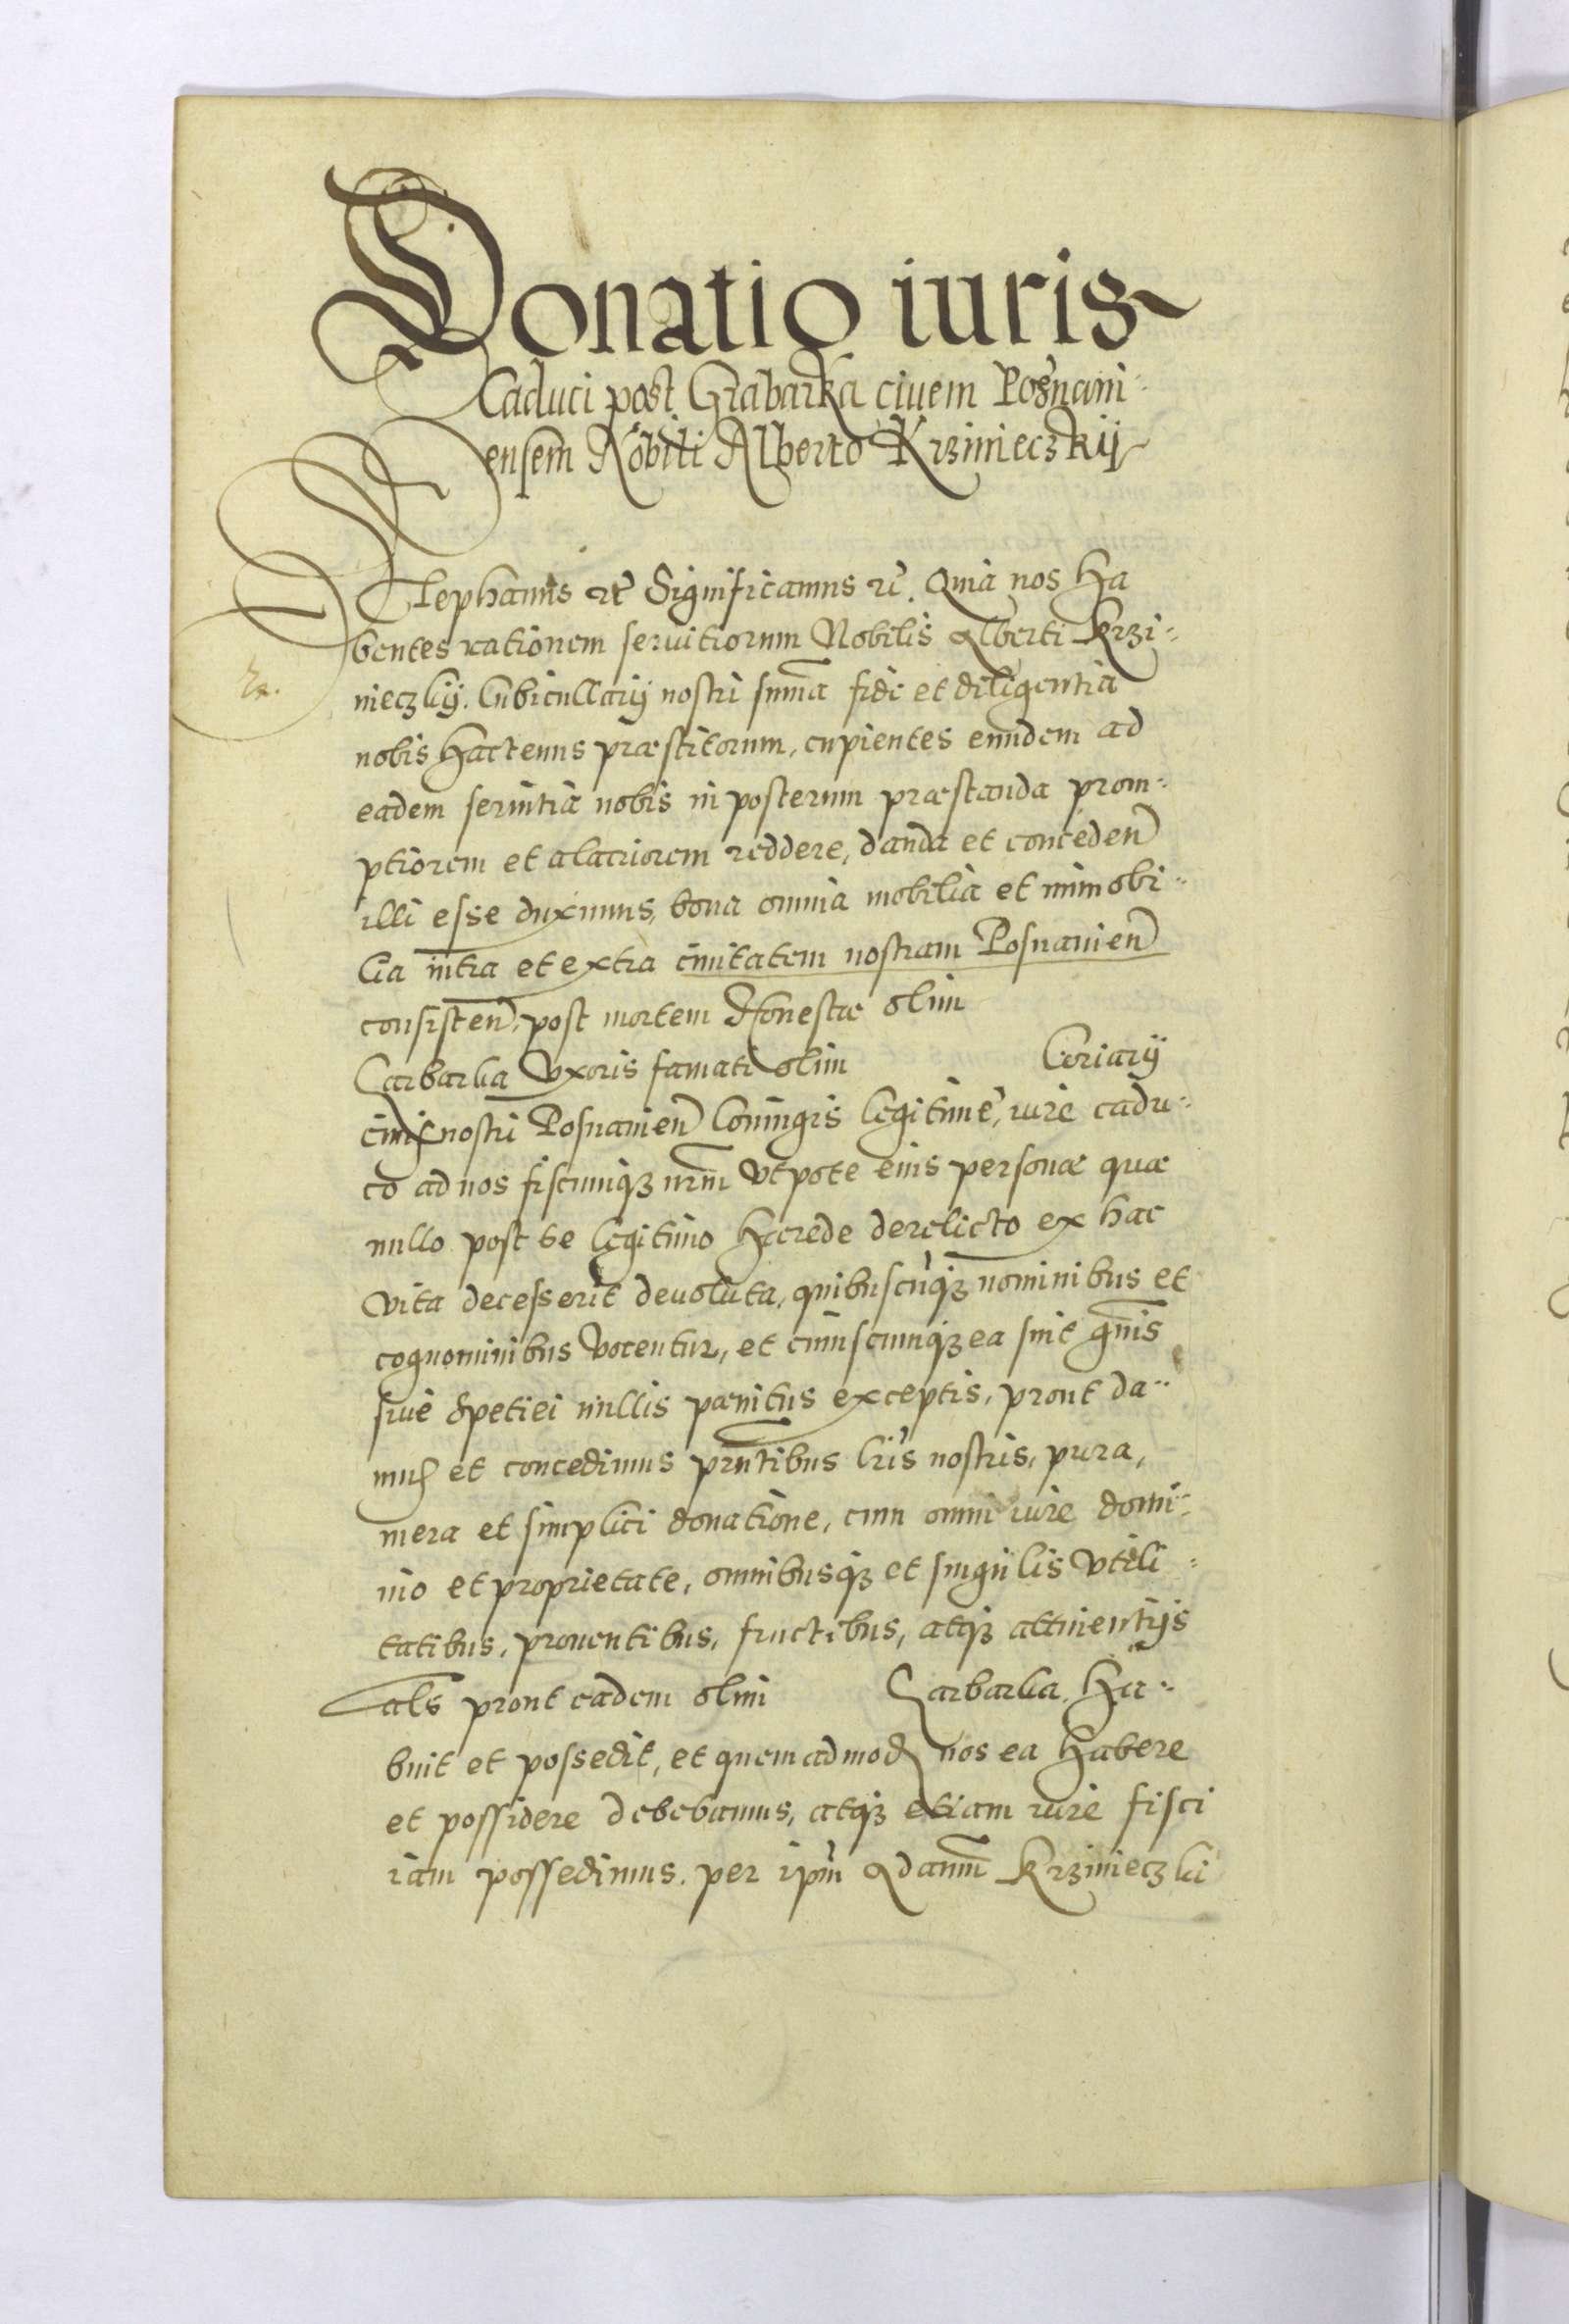 Donatio iuris
Caduci post Grabarka ciuem Posnani-
ensem Nobili Alberto Krzinieczkij
Stephanus etc Significamus etc. Quia nos Ha
bentes rationem seruitiorum Nobilis Alberti Krzi-
nieczkij. Cubicullarij nostri summa fide et diligentia
nobis Hactenus præstitorum, cupientes eundem ad
eadem seruitia nobis in posterum præstanda prom-
ptiorem et alacriorem reddere, danda et conceden
illi esse duximus, bona omnia mobilia et immobi-
lia intra et extra ciuitatem nostram Posnanien
consisten, post mortem Honestæ olim
Garbarka Vxoris famati olim Coriarij
ciuis nostri Posnanien Coniugis legitimè, iure cadu-
co ad nos fiscumqz nrm Vtpote eius personæ quæ
nullo post se legitimo Hærede derelicto ex hac
Vita decesserit deuoluta, quibuscũqz nominibus et
cognominibus Vocentur, et cuiuscumqz ea sint gnis
siue spetiei nullis pænitus exceptis, prout da-
mus et concedimus pñtibus lris nostris, pura,
mera et simplici donatione, cum omni iure domi-
nio et proprietate, omnibusqz et singulis Vtili-
tatibus, prouentibus, fructibus, atqz attinentijs
als prout eadem olim Garbarka Ha-
buit et possedit, et quemadmod nos ea Habere
et possidere debebamus, atqz etiam iure fisci
iam possedimus. per ipm Adamm Krzinieczki